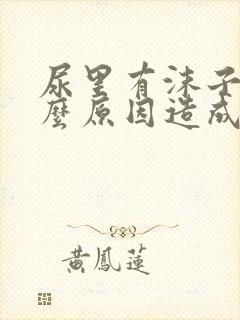 尿里有沫子
麼原因造成
黃鳳蓮